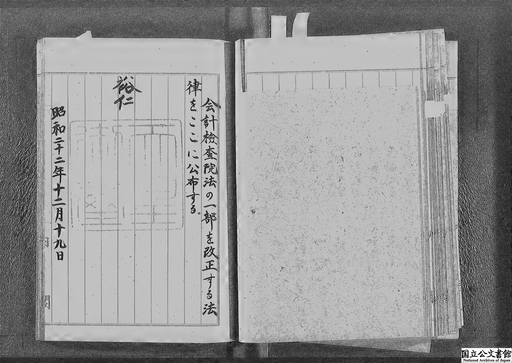 会計檢査院法の一部を改正する法
律をここに公布する。
裕仁
昭和二十二年十二月十九日
内閣
国立公文書館
National Archives of Japan